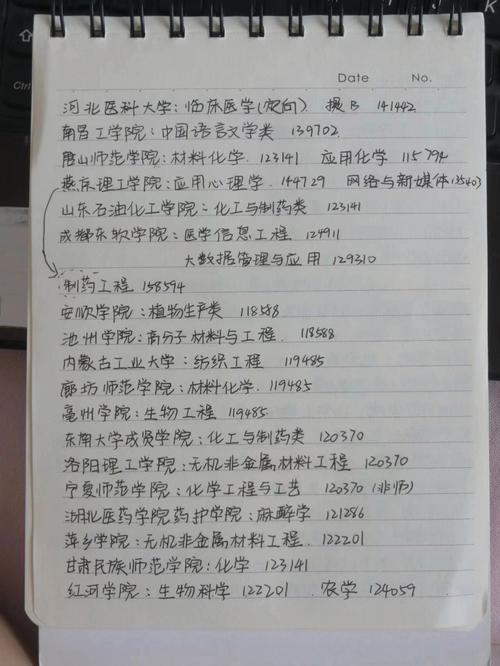 Date No.
河北医科大学：临床医学(定向) 提B 141442
南昌工学院：中国语言文学类 139702
唐山师范学院：材料化学 123141 应用化学 115794
燕京理工学院：应用心理学 144729 网络与新媒体 135403
山东石油化工学院：化工与制药类 123141
成都东软学院：医学信息工程 124911
大数据管理与应用 129310
制药工程 158594
安顺学院：植物生产类 118588
池州学院：高分子材料与工程 118588
内蒙古工业大学：纺织工程 119485
廊坊师范学院：材料化学 119485
亳州学院：生物工程 119485
东南大学成贤学院：化工与制药类 120370
洛阳理工学院：无机非金属材料工程 120370
宁夏师范学院：化学工程与工艺 120370 (非师)
湖北医药学院药护学院：麻醉学 121286
萍乡学院：无机非金属材料工程 122201
甘肃民族师范学院：化学 123141
红河学院：生物科学 122201 农学 124059